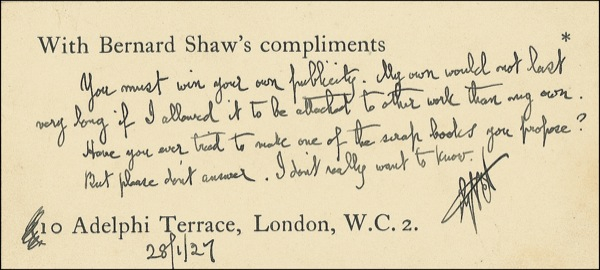 With Bernard Shaw's compliments *
You must win your own publicity. My own would not last
very long if I allowed it to be attached to other work than my own.
Have you ever tried to make one of the scrap books you propose?
But please don't answer. I don't really want to know.
10 Adelphi Terrace, London, W.C.2.
28/1/27